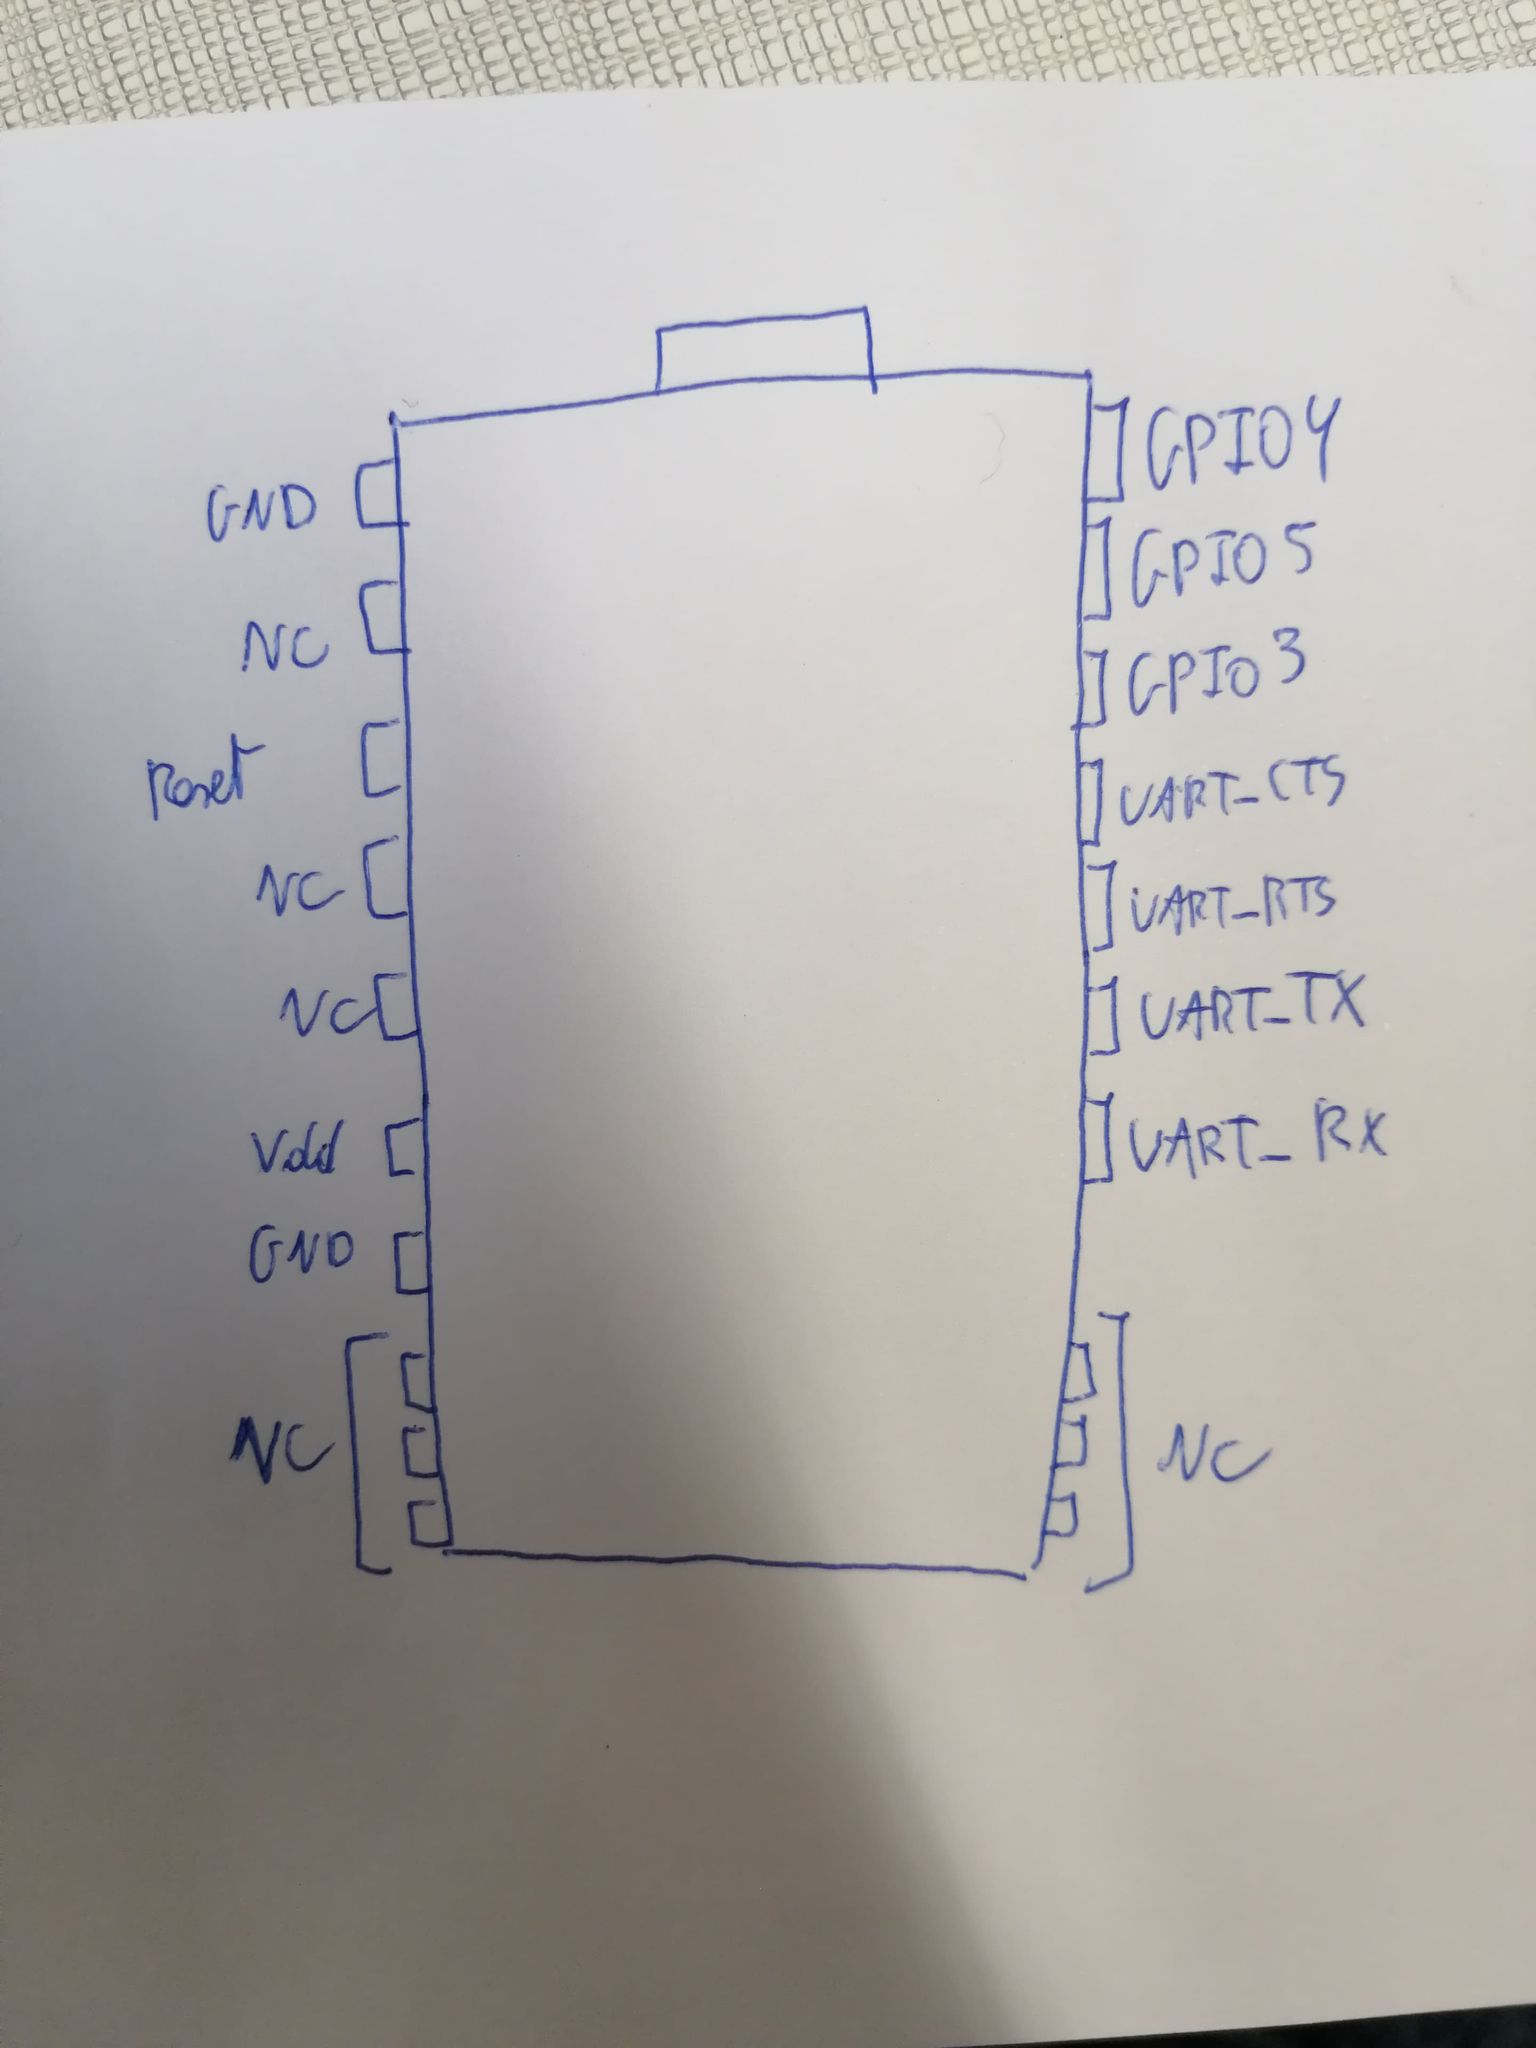 GND
NC
Reset
NC
NC
Vdd
GND
NC
GPIO4
GPIO5
GPIO3
UART_CTS
UART_RTS
UART_TX
UART_RX
NC